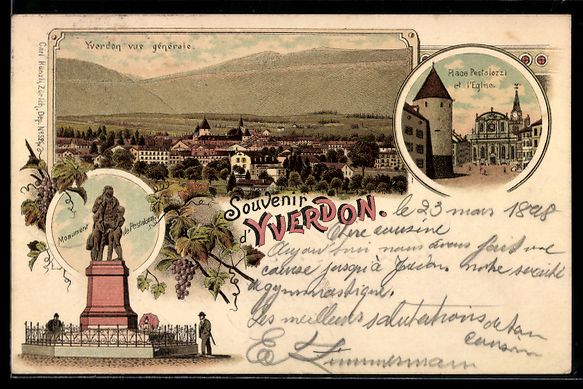 Yverdon vue générale.
Place Pestalozzi
et l'Eglise.
Carl Künzli, Zürich, Dep. No
Monument de Pestalozzi
Souvenir
d'YVERDON.
le 23 mars 1898
Chère cousine
Aujourd'hui nous avons fait une
course jusqu'à Yverdon notre société
de gymnastique.
Les meilleurs salutations de ton
cousin
E. Zimmermann